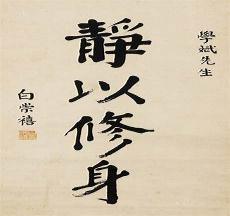 學斌先生
靜以修身
白崇禧